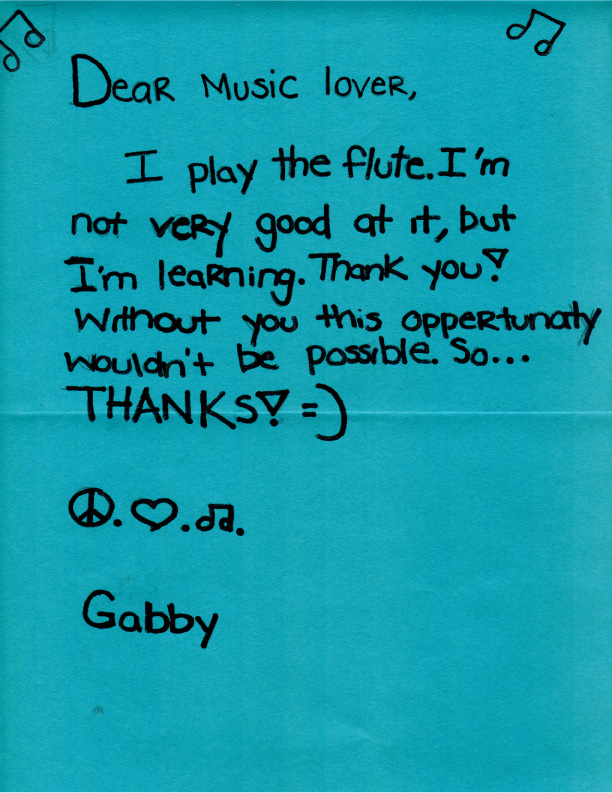 Dear Music lover,
I play the flute. I'm
not very good at it, but
I'm learning. Thank you!
Without you this oppertunaty
wouldn't be possible. So...
THANKS! =)
☮. ♡. ♫.
Gabby